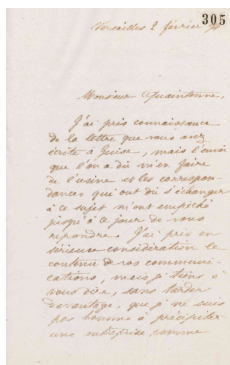 305
Versailles 2 février
Monsieur Quaintenne,
J'ai pris connaissance
de la lettre que vous avez
écrite à Guise, mais l'envoi
que l'on a dû m'en faire
de l'usine et les correspon-
dances qui ont dû s'échanger
à ce sujet m'ont empêché
jusqu'à ce jour de vous
répondre. J'ai pris en
sérieuse considération le
contenu de vos communi-
cations, mais je tiens à
vous dire, sans tarder
davantage, que je ne suis
pas homme à précipiter
une entreprise comme